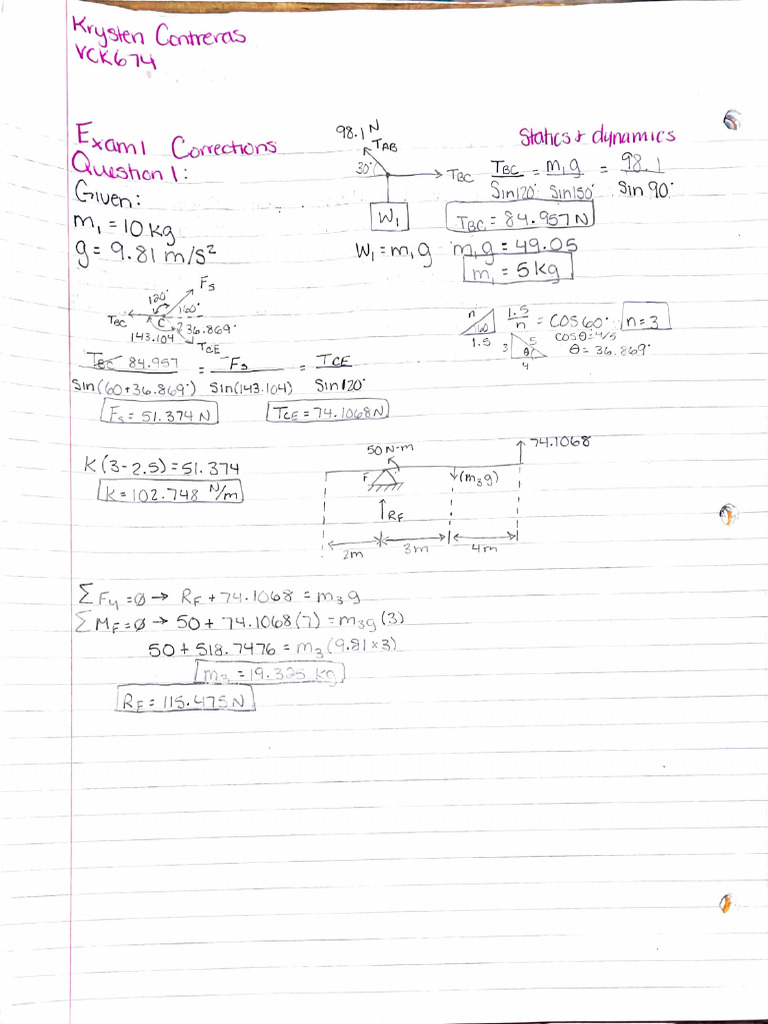 Krysten Contreras
VCK674
Exam 1 Corrections
Statics + dynamics
Question 1:
Given:
m₁ = 10 kg
g = 9.81 m/s²
98.1 N
T_AB
30°
T_BC
W₁
W₁ = m₁g
T_BC/Sin120° = m₁g/Sin150° = 98.1/Sin 90°
T_BC = 84.957 N
m₁g = 49.05
m₁ = 5 kg
F_s
120°
60°
T_BC
C
36.869°
143.104
T_CE
n
60
1.5
1.5/n = COS60° n = 3
3
5
θ
4
COSθ = 4/5
θ = 36.869°
84.957/Sin(60+36.869°) = F_s/Sin(143.104) = T_CE/Sin120°
F_s = 51.374 N
T_CE = 74.1068 N
K(3-2.5) = 51.374
K = 102.748 N/m
50 N-m
74.1068
F
(m₃g)
R_F
2m
3m
4m
ΣF_y = 0 → R_F + 74.1068 = m₃g
ΣM_F = 0 → 50 + 74.1068(7) = m₃g(3)
50 + 518.7476 = m₃(9.81×3)
m₃ = 19.325 kg
R_F = 115.475 N